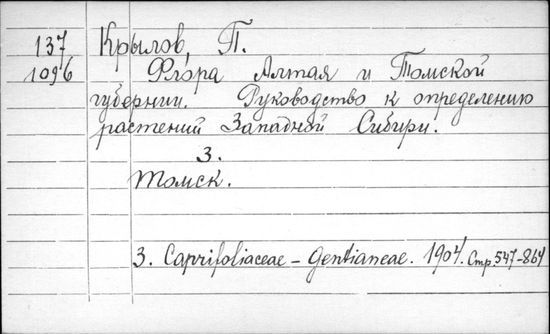 137 Крылов, П.
1096 Флора Алтая и Томской
губернии. Руководство к определению
растений Западной Сибири.
3.
Томск.
3. Caprifoliaceae - Gentianeae. 1904. Стр. 547-864